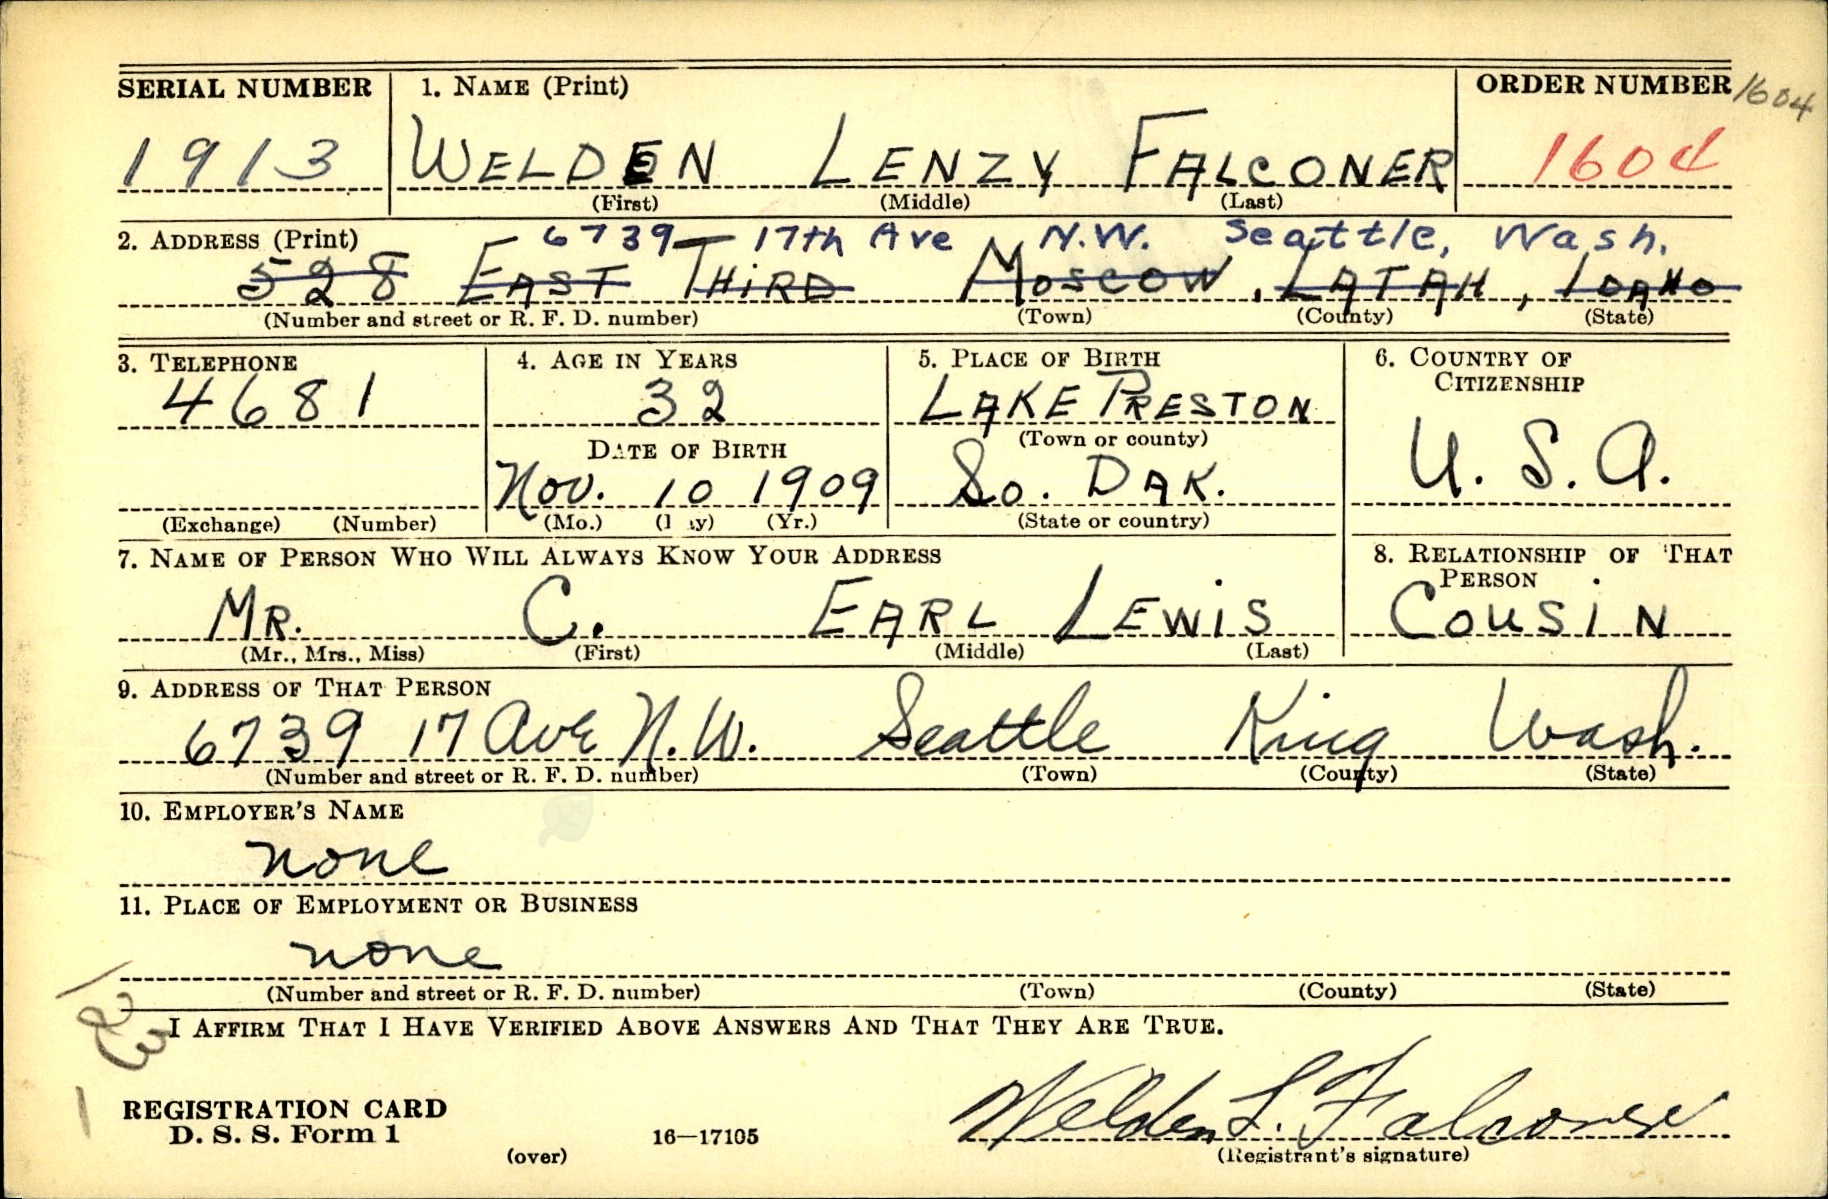 SERIAL NUMBER 1. NAME (Print) ORDER NUMBER 1604
1913 WELDEN LENZY FALCONER 1604
(First) (Middle) (Last)
2. ADDRESS (Print) 6739 17th Ave N.W. Seattle, Wash.
528 EAST THiRD MOSCOW, LATAH, IDAHO
(Number and street or R. F. D. number) (Town) (County) (State)
3. TELEPHONE 4. AGE IN YEARS 5. PLACE OF BIRTH 6. COUNTRY OF
CITIZENSHIP
4681 32 LAKE PRESTON
(Town or county)
DATE OF BIRTH U. S. A.
Nov. 10 1909 So. DAK.
(Exchange) (Number) (Mo.) (Day) (Yr.) (State or country)
7. NAME OF PERSON WHO WILL ALWAYS KNOW YOUR ADDRESS 8. RELATIONSHIP OF THAT
PERSON
MR. C. EARL LEWiS COUSiN
(Mr., Mrs., Miss) (First) (Middle) (Last)
9. ADDRESS OF THAT PERSON
6739 17 Ave N.W. Seattle King Wash.
(Number and street or R. F. D. number) (Town) (County) (State)
10. EMPLOYER'S NAME
none
11. PLACE OF EMPLOYMENT OR BUSINESS
none
(Number and street or R. F. D. number) (Town) (County) (State)
I AFFIRM THAT I HAVE VERIFIED ABOVE ANSWERS AND THAT THEY ARE TRUE.
REGISTRATION CARD
D. S. S. Form 1 16—17105 Welden L. Falconer
(over) (Registrant's signature)